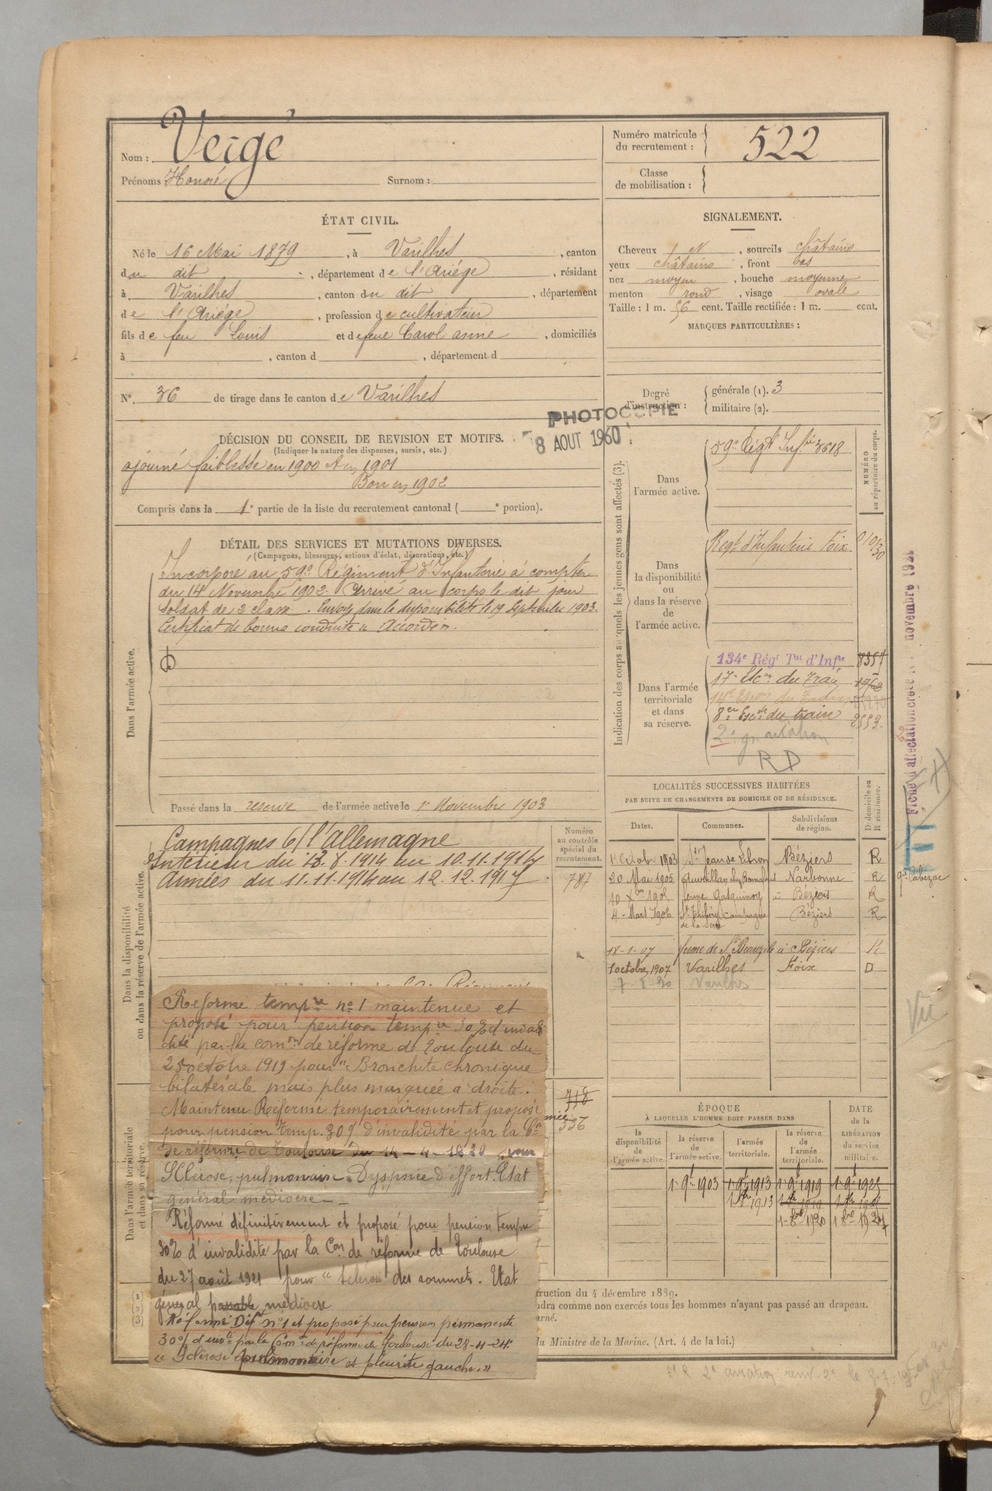 Nom : Vergé
Prénoms : Honoré Surnom :
Numéro matricule du recrutement : 522
Classe de mobilisation :
ÉTAT CIVIL.
Né le 16 Mai 1879, à Varilhes, canton
du dit, département de l'Ariège, résidant
à Varilhes, canton du dit, département
de l'Ariège, profession de cultivateur
fils de feu Louis et de feue Carol anne, domiciliés
à , canton d , département d
N° 36 de tirage dans le canton de Varilhes
SIGNALEMENT.
Cheveux , sourcils châtains
yeux châtains, front bas
nez moyen, bouche moyenne
menton rond, visage ovale
Taille : 1 m. 56 cent. Taille rectifiée : 1 m. cent.
MARQUES PARTICULIÈRES :
Degré d'instruction : générale (1). 3
militaire (2).
PHOTOCOPIE
8 AOUT 1960
DÉCISION DU CONSEIL DE REVISION ET MOTIFS.
(Indiquer la nature des dispenses, sursis, etc.)
ajourné faiblesse en 1900 et en 1901
Bon en 1902
Compris dans la 1e partie de la liste du recrutement cantonal ( e portion).
DÉTAIL DES SERVICES ET MUTATIONS DIVERSES.
(Campagnes, blessures, actions d'éclat, décorations, etc.)
Dans l'armée active.
Incorporé au 59e Régiment d'Infanterie à compter
du 14 Novembre 1902. Arrivé au corps le dit jour
soldat de 2 classe. Envoyé dans la disponibilité le 19 Septembre 1903.
Certificat de bonne conduite "Accordé".
Passé dans la réserve de l'armée active le 1er Novembre 1903
Indication des corps auxquels les jeunes gens sont affectés (3).
NUMÉRO au répertoire du corps.
Dans l'armée active.
59e Régt Inf.ie 3618
Dans la disponibilité ou dans la réserve de l'armée active.
Regt d'Infanterie Foix
Dans l'armée territoriale et dans sa réserve.
134e Régt Tal d'Infie
17e Eson du Train
8e Esc. du train 2552
RD
Fiche d'affectation créée le novembre 1931
LOCALITÉS SUCCESSIVES HABITÉES
PAR SUITE DE CHANGEMENTS DE DOMICILE OU DE RÉSIDENCE.
Dates. Communes. Subdivisions de région. D domicile ou R résidence.
1er Octobre 1903 Béziers R
20 Mai 1905 Narbonne R
R
4 Mars 1906 Béziers R
18-1-07 Béziers R
1 octobre 1907 Varilhes Foix D
7-8-30 Varilhes
Dans la disponibilité ou dans la réserve de l'armée active.
Campagnes c/ l'Allemagne
Intérieur du 13.8.1914 au 10.11.1914
Armées du 11.11.1914 au 12.12.1917
Numéro au contrôle spécial du recrutement.
787
718
556
Dans l'armée territoriale et dans sa réserve.
Réforme tempre n° 1 maintenue et
proposé pour pension tempre 30% d'inva-
dité par la comon de réforme de Toulouse du
25 octobre 1919 pour "Bronchite chronique
bilatérale mais plus marquée à droite.
Maintenu Réformé temporairement et proposé
pour pension temp. 30% d'invalidité par la Con
de réforme de Toulouse du 14-4-1920 pour
Sclérose pulmonaire Dyspnée d'effort. Etat
général médiocre
Réformé définitivement et proposé pour pension tempre
30% d'invalidité par la Con de réforme de Toulouse
du 27 août 1921 pour "Sclérose des sommets. Etat
général passable médiocre
Réformé Déf. n° 1 et proposé pour pension permanente
30% d'invté par la Comon de réforme de Toulouse du 28-4-24.
"Sclérose pulmonaire et pleurite gauche."
ÉPOQUE
À LAQUELLE L'HOMME DOIT PASSER DANS
la disponibilité de l'armée active. la réserve de l'armée active. l'armée territoriale. la réserve de l'armée territoriale. DATE DE LA LIBÉRATION du service militaire.
1 9bre 1903 1 9bre 1913 1 9bre 1919
truction du 4 décembre 1889.
ndra comme non exercés tous les hommes n'ayant pas passé au drapeau.
arné.
du Ministre de la Marine. (Art. 4 de la loi.)